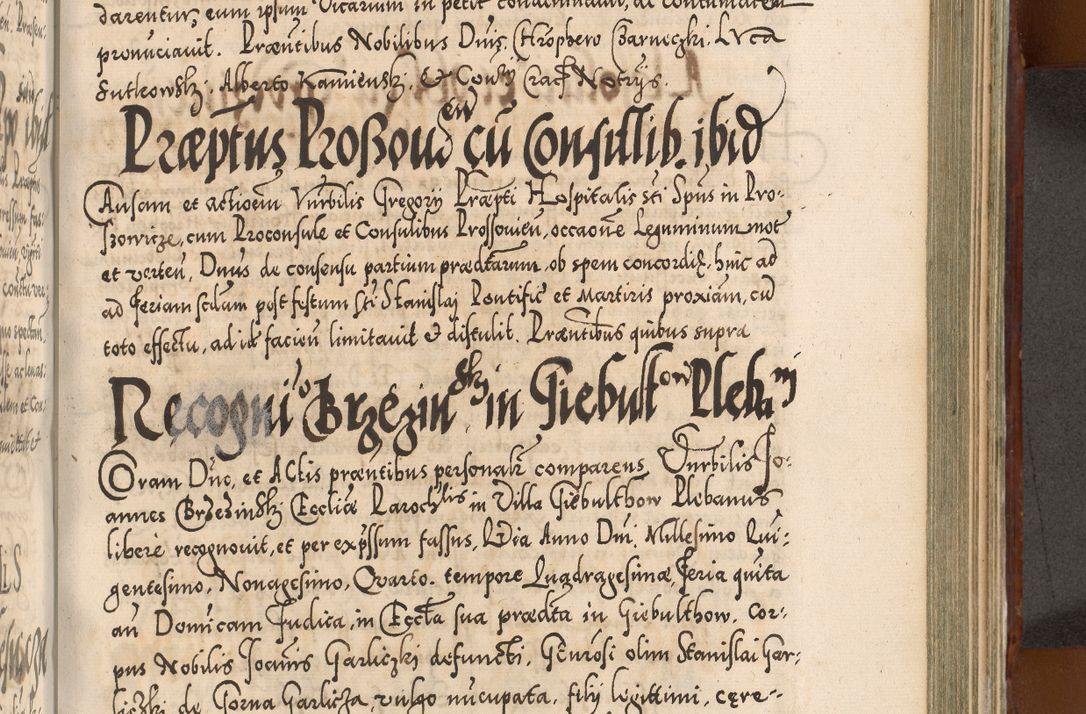 darentur, eum ipsum Vicarium in petit condemnauit, ac contumacem
pronuciauit. Præntibus Nobilibus Dnis, Chrophero Czarneczki, Luca
Sutkowski, Alberto Kamienski, & Couis Crac Notrijs.
Præptus Proßouien cu Consulib. ibid
Causam et actioem Vnrbilis Gregorij Præpti Hospitalis sti Spus in Pro-
szouicze, cum Proconsule et Consulibus Prossouien, occaone Leguminum mot
et verten, Dnus de consensu partium prædtarum, ob spem concordiæ, hinc ad
ad feriam scdam post festum sti Stanislaj Pontific et Martiris proxiam, cu
toto effectu, ad id faciēn limitauit & distulit. Præntibus quibus supra
Recognitio Brzezinski in Giebultow Plebani
Coram Dno, et Actis præntibus personalr comparens Vnrbilis Jo-
annes Brzezinski Eccliæ Parochlis in Villa Giebulthow Plebanus
libere recognouit, et per expssum fassus, Quia Anno Dni Millesimo Qui-
gentesimo, Nonagesimo, Quarto. tempore Quadragesimæ, feria quita
an Domicam Judica, in Eccta sua prædta in Giebulthow. Cor-
pus Nobilis Joannis Garliczki defuncti, Generosi olim Stanislai Gar-
liczki de Gorna Garlicza, vulgo nucupata, filij legittimi, cere-